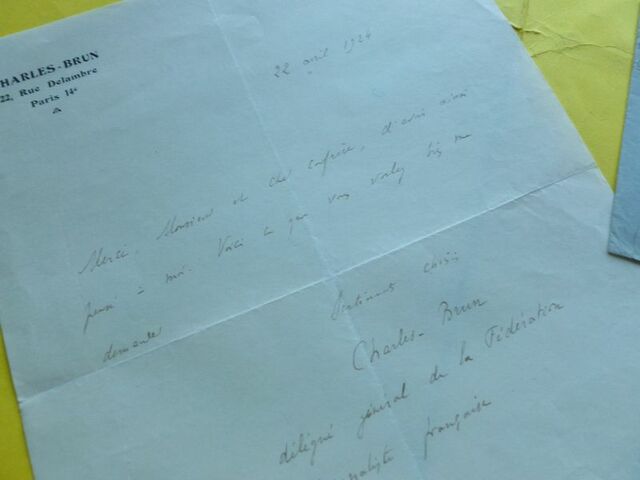 HARLES-BRUN
22, Rue Delambre
Paris 14e
22 avril 1924
Merci, Monsieur et cher confrère, d'avoir ainsi
pensé à moi. Voici ce que vous voulez bien me
demander
Charles-Brun
délégué général de la Fédération
naliste française